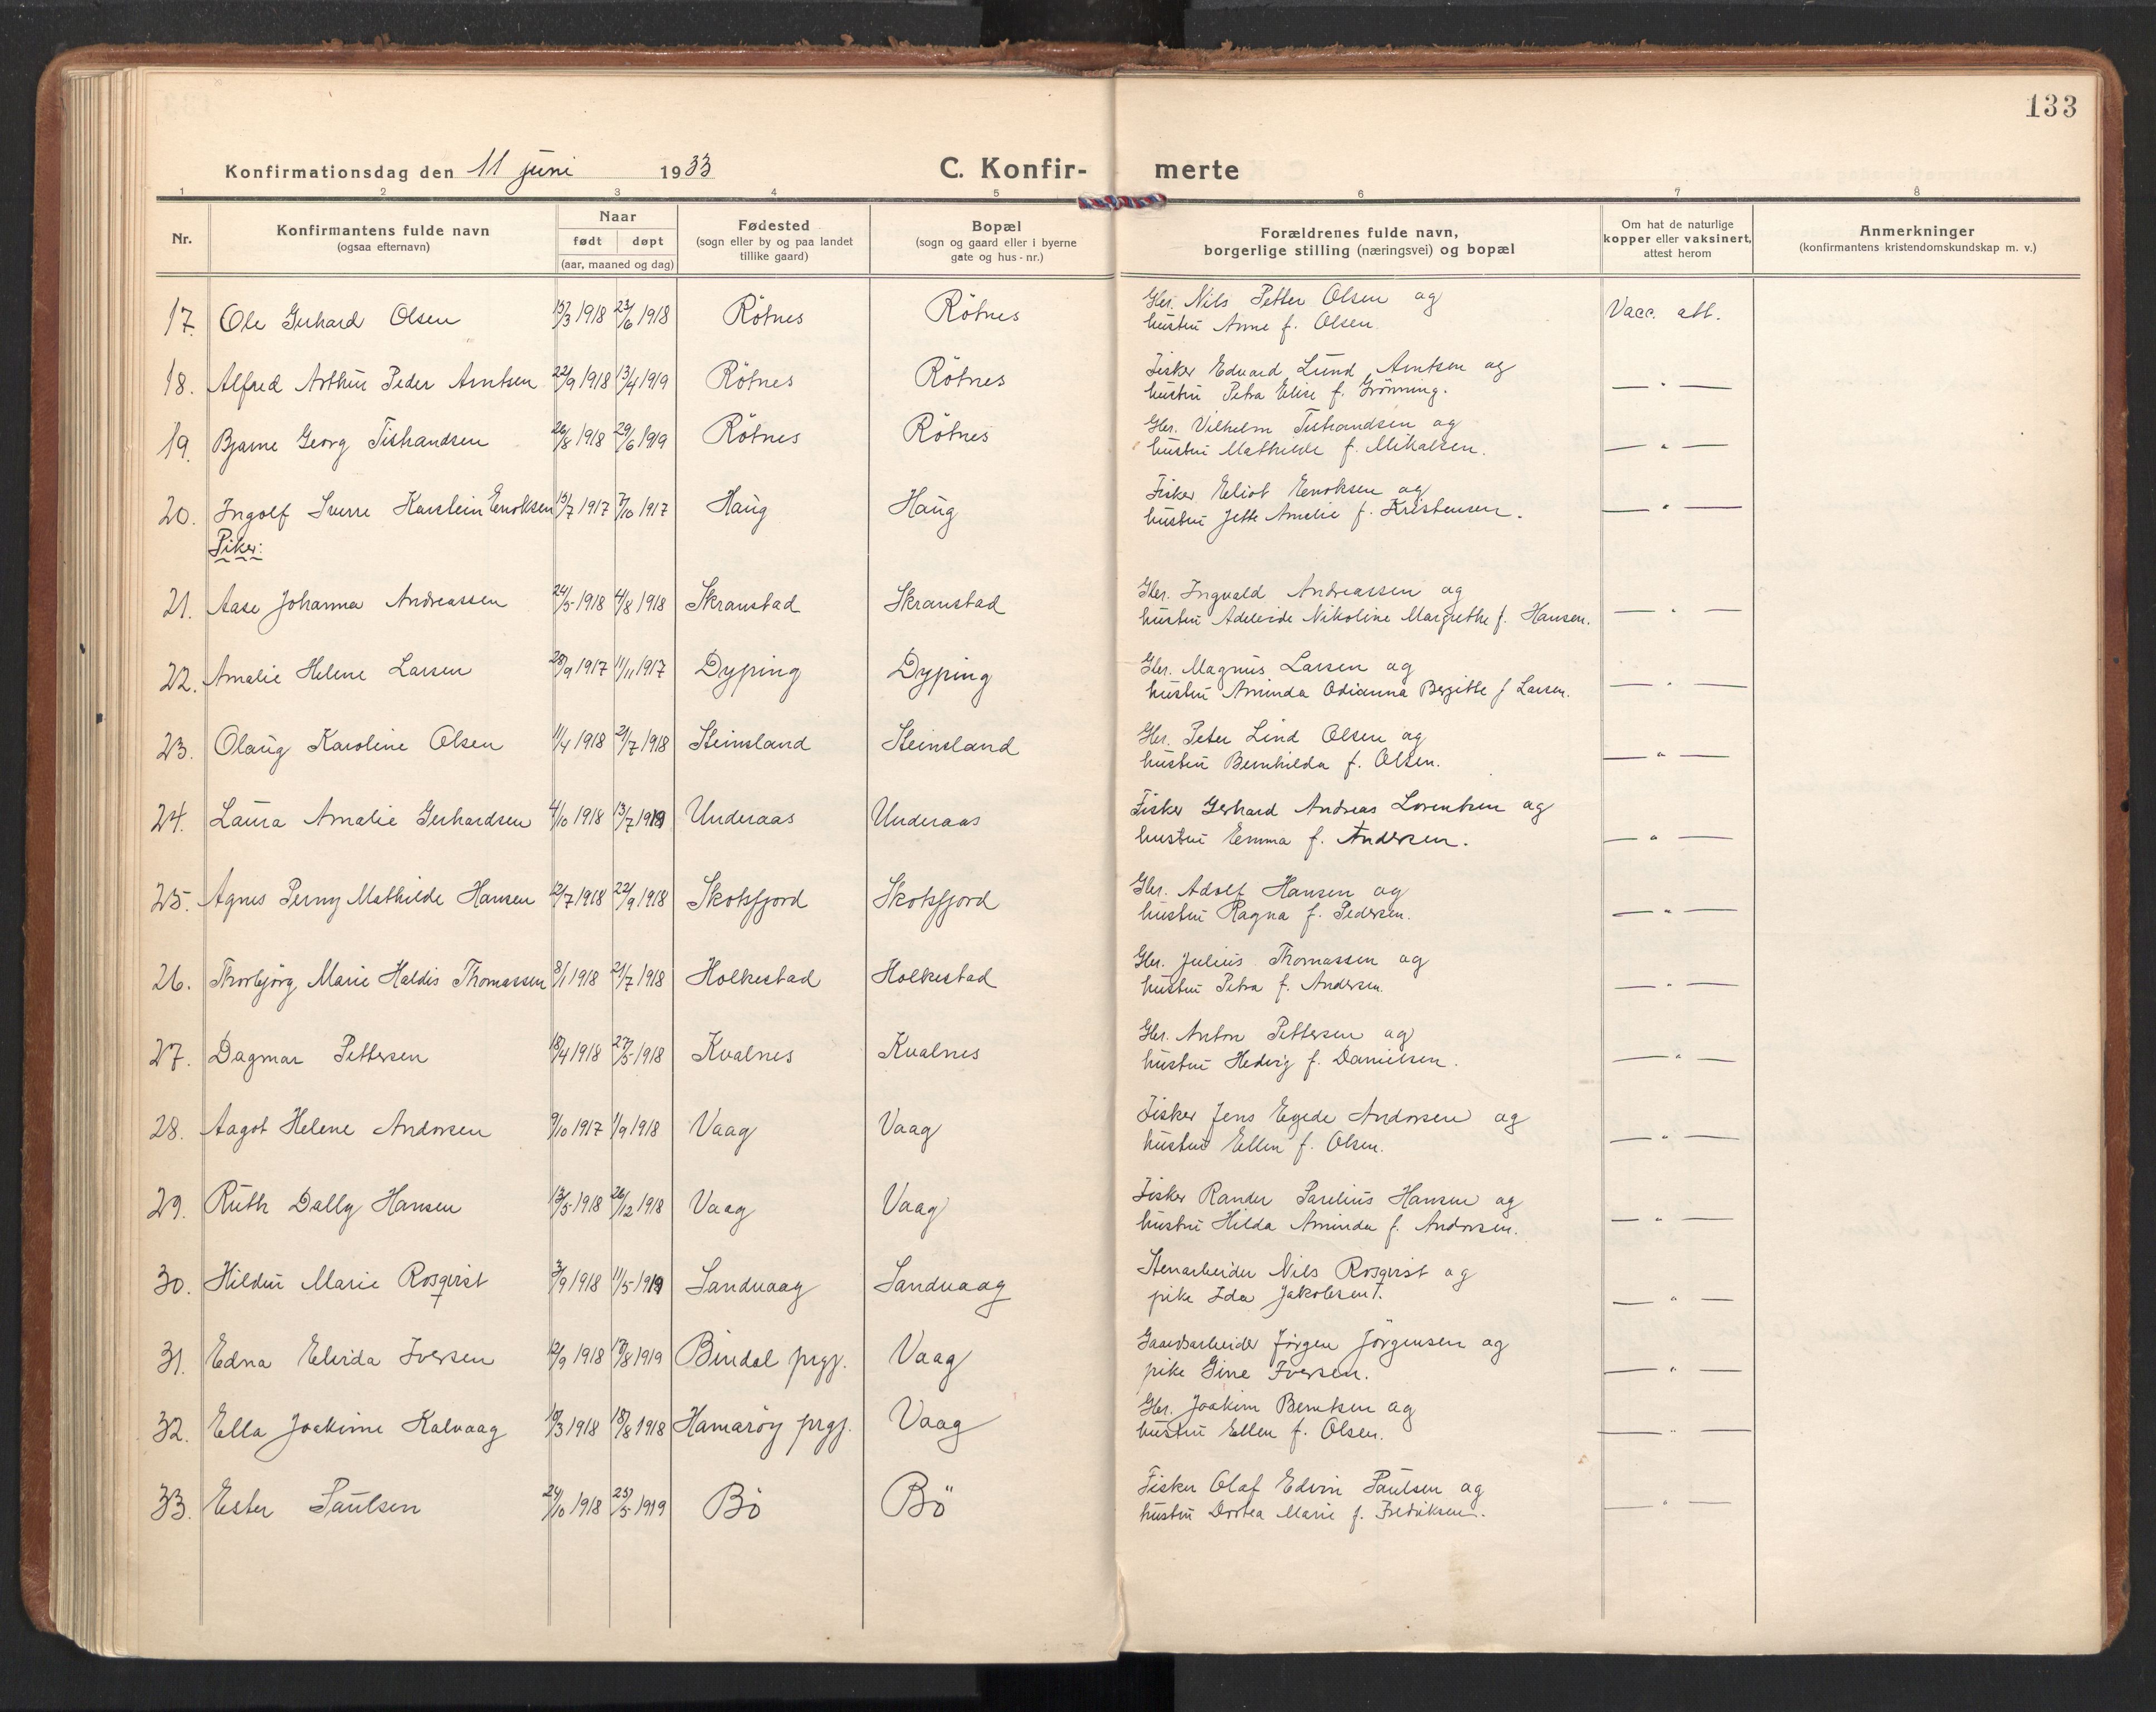 133
Konfirmationsdag den 11 juni 1933
C. Konfir- merte
1 2 3 4 5 6 7 8
Nr.
Konfirmantens fulde navn
(ogsaa efternavn)
Naar
født døpt
(aar, maaned og dag)
Fødested
(sogn eller by og paa landet
tillike gaard)
Bopæl
(sogn og gaard eller i byerne
gate og hus-nr.)
Forældrenes fulde navn,
borgerlige stilling (næringsvei) og bopæl
Om hat de naturlige
kopper eller vaksinert,
attest herom
Anmerkninger
(konfirmantens kristendomskundskap m. v.)
17. Ole Gerhard Olsen 15/3 1918 23/6 1918 Rötnes Rötnes Gbr. Nils Petter Olsen og Vacc. att.
hustru Anne f. Olsen.
18. Alfred Arthur Peder Arntsen 22/9 1918 13/4 1919 Rötnes Rötnes Fisker Edvard Lund Arntsen og — " —
hustru Petra Elise f. Grönning.
19. Bjarne Georg Tishandsen 26/8 1918 29/6 1919 Rötnes Rötnes Gbr. Vilhelm Tishandsen og — " —
hustru Mathilde f. Mikalsen.
20. Ingolf Sverre Karstein Enoksen 15/7 1917 7/10 1917 Haug Haug Fisker Eliot Enoksen og — " —
hustru Jette Amelie f. Kristensen.
Piker:
21. Aase Johanna Andreassen 24/5 1918 4/8 1918 Skranstad Skranstad Gbr. Ingvald Andreassen og — " —
hustru Adeleide Nikoline Margrethe f. Hansen.
22. Amalie Helene Larsen 28/9 1917 11/11 1917 Dyping Dyping Gbr. Magnus Larsen og — " —
hustru Aminda Odianna Bergitte f Larsen.
23. Olaug Karoline Olsen 11/4 1918 21/7 1918 Steinsland Steinsland Gbr. Peter Lind Olsen og — " —
hustru Bernhilda f. Olsen.
24. Laura Amalie Gerhardsen 4/10 1918 13/7 1919 Underaas Underaas Fisker Gerhard Andreas Lorentsen og — " —
hustru Emma f. Andersen.
25. Agnes Perny Mathilde Hansen 12/7 1918 22/9 1918 Skotsfjord Skotsfjord Gbr. Adolf Hansen og — " —
hustru Ragna f. Pedersen.
26. Thorbjörg Marie Haldis Thomassen 8/1 1918 21/7 1918 Holkestad Holkestad Gbr. Julius Thomassen og — " —
hustru Petra f. Andersen.
27. Dagmar Pettersen 18/4 1918 27/5 1918 Kvalnes Kvalnes Gbr. Anton Pettersen og — " —
hustru Hedvig f. Danielsen.
28. Aagot Helene Andorsen 9/10 1917 1/9 1918 Vaag Vaag Fisker Jens Egede Andorsen og — " —
hustru Ellen f. Olsen.
29. Ruth Dally Hansen 13/5 1918 26/12 1918 Vaag Vaag Fisker Rander Parelius Hansen og — " —
hustru Hilda Aminda f. Andorsen.
30. Hildur Marie Rosqvist 3/9 1918 11/5 1919 Sandvaag Sandvaag Stenarbeider Nils Rosqvist og — " —
pike Ida Jakobsen.
31. Edna Elvida Iversen 12/9 1918 17/8 1919 Bindal prgj. Vaag Gaardsarbeider Jörgen Jörgensen og — " —
pike Gine Iversen.
32. Ella Joakime Kalvaag 10/3 1918 18/8 1918 Hamaröy prgj. Vaag Gbr. Joakim Berntsen og — " —
hustru Ellen f. Olsen.
33. Ester Paulsen 24/10 1918 25/5 1919 Bö Bö Fisker Olaf Edvin Paulsen og — " —
hustru Dortea Marie f. Fredriksen.